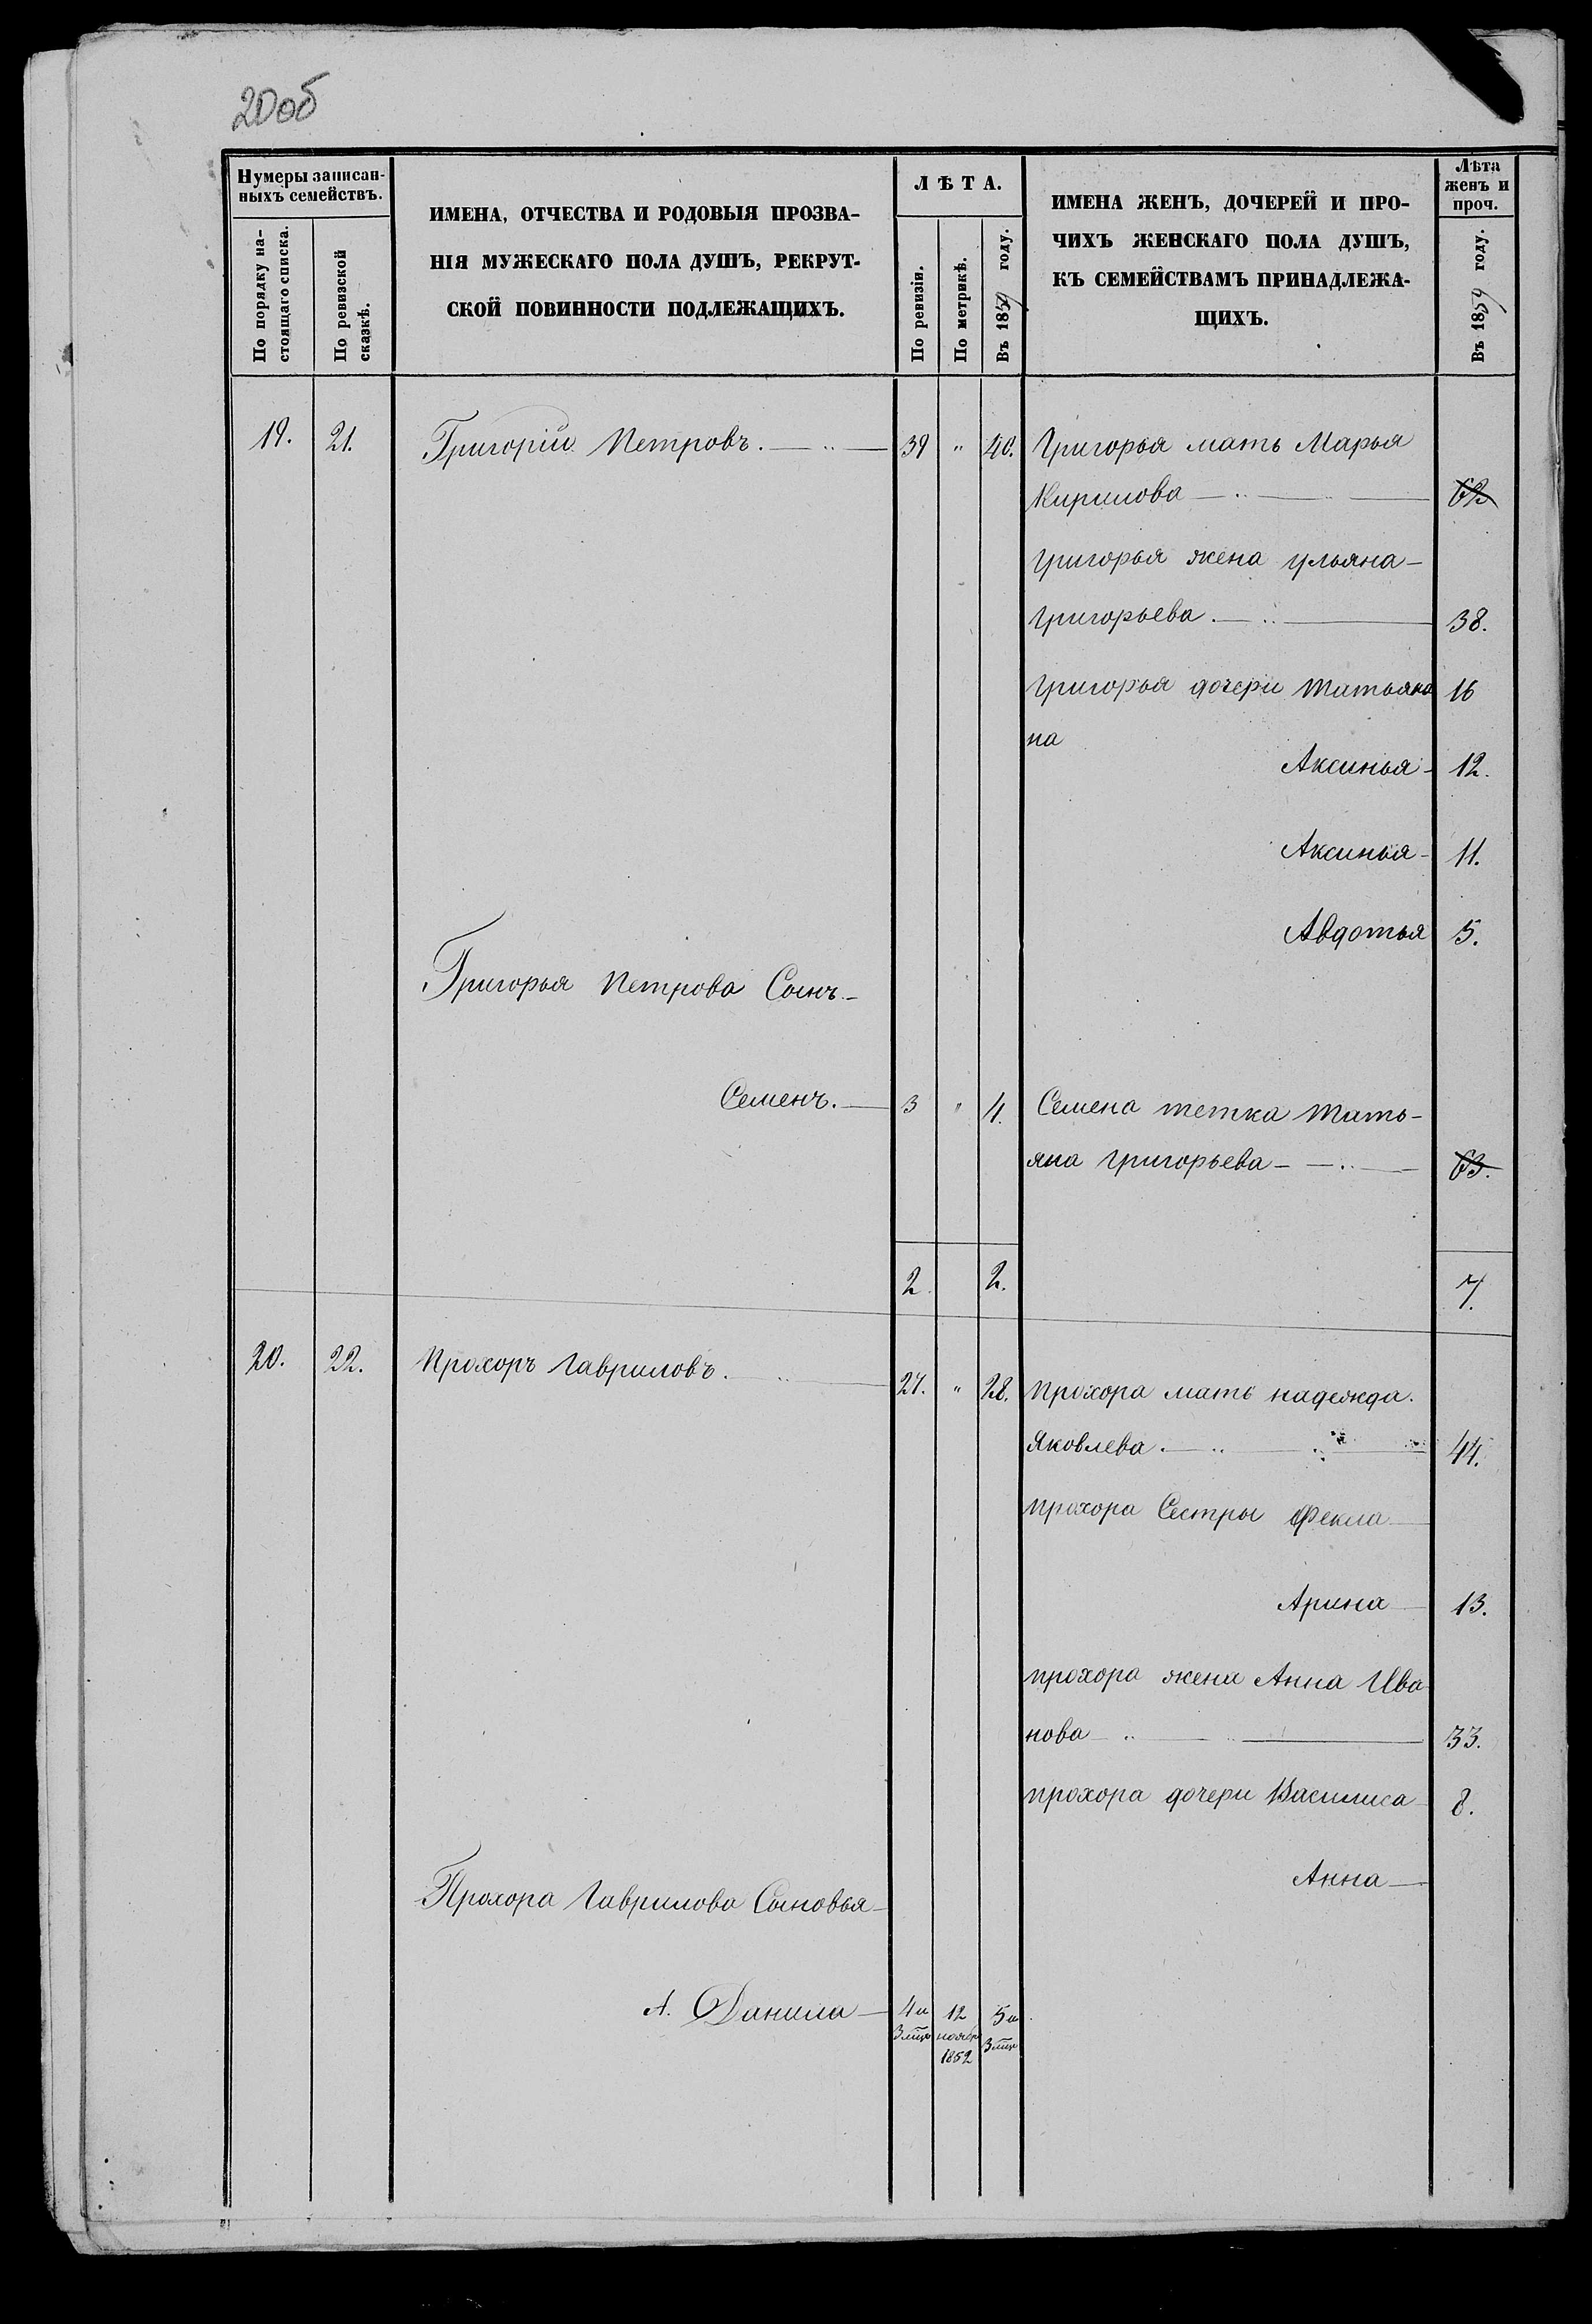 20об
Нумеры записан-
ныхъ семействъ.
По порядку на-
стоящаго списка.
По ревизской
сказкѣ.
ИМЕНА, ОТЧЕСТВА И РОДОВЫЯ ПРОЗВА-
НІЯ МУЖЕСКАГО ПОЛА ДУШЪ, РЕКРУТ-
СКОЙ ПОВИННОСТИ ПОДЛЕЖАЩИХЪ.
ЛѢТА.
По ревизіи.
По метрикѣ.
Въ 1859 году.
ИМЕНА ЖЕНЪ, ДОЧЕРЕЙ И ПРО-
ЧИХЪ ЖЕНСКАГО ПОЛА ДУШЪ,
КЪ СЕМЕЙСТВАМЪ ПРИНАДЛЕЖА-
ЩИХЪ.
Лѣта
женъ и
проч.
Въ 1859 году.
19. 21. Григорій Петровъ. — 39 " 40. Григорья мать Марья
Кирилова — 62
Григорья жена Ульяна —
Григорьева. — 38.
Григорья дочери Татьяна 16
на
Аксинья - 12.
Аксинья - 11.
Авдотья 5.
Григорья Петрова Сынъ. -
Семенъ. — 3 " 4. Семена тетка Тать-
яна Григорьева - — 63.
2. 2. 7.
20. 22. Прохоръ Гавриловъ. — 27. " 28. прохора мать надежда.
Яковлева. — 44.
прохора Сестры Фекла —
Арина — 13.
прохора жена Анна Ива
нова — 33.
прохора дочери Василиса 8.
Анна —
Прохора Гаврилова Сыновья -
1. Данила — 4 и 12 5 и
3 мѣс ноябр 3 мѣс
1852